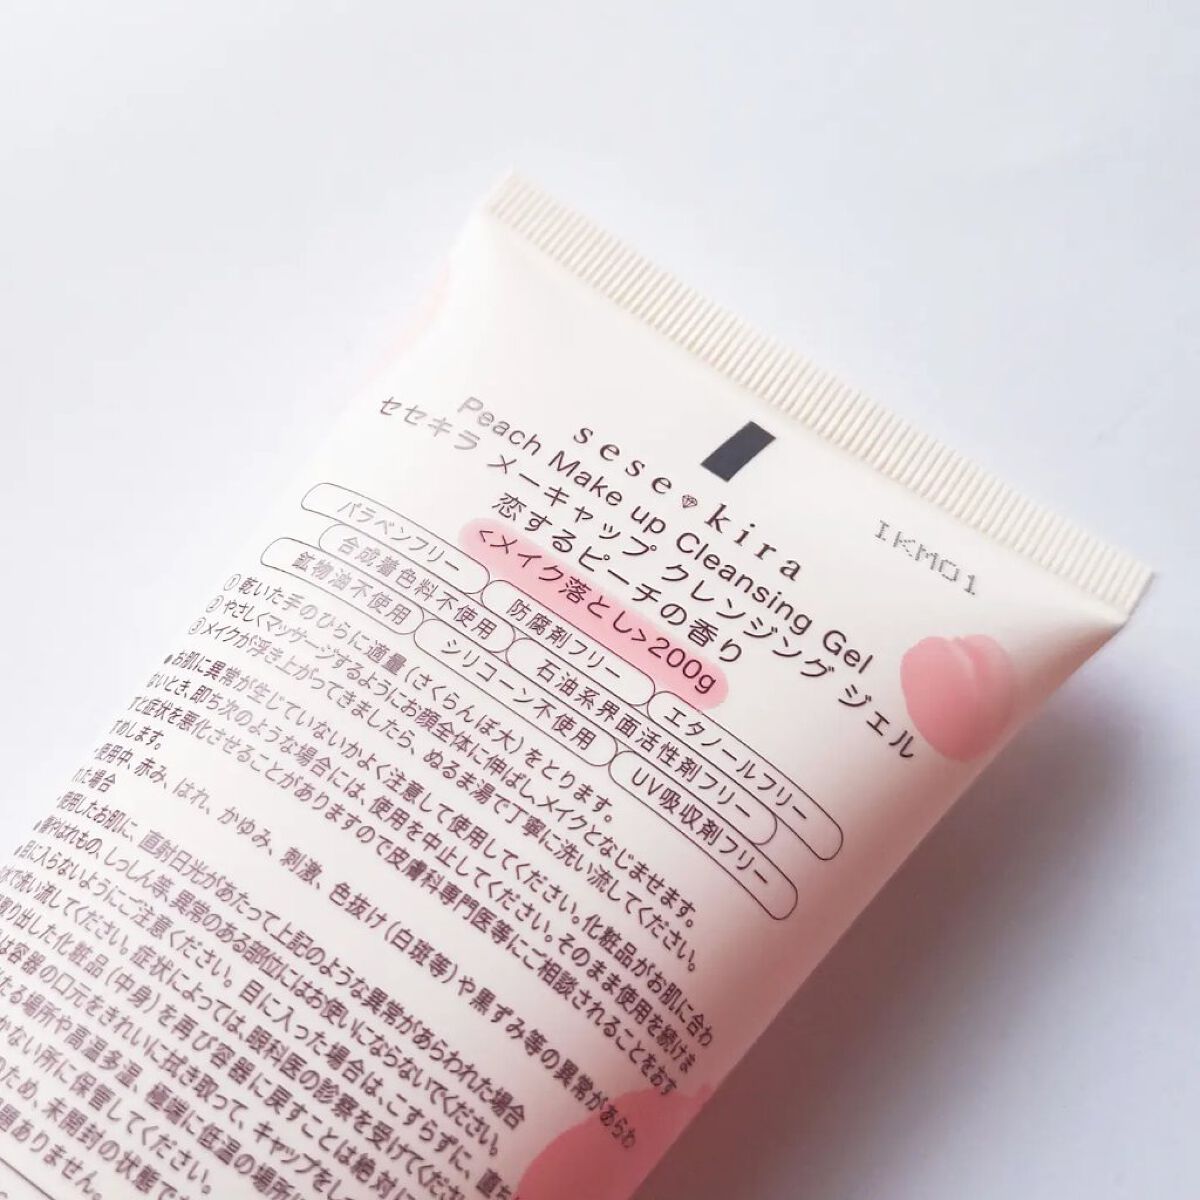 sese kira
Peach Make up Cleansing Gel
セセキラ メーキャップ クレンジング ジェル
恋するピーチの香り
<メイク落とし>200g
IKM01
パラベンフリー 防腐剤フリー エタノールフリー
合成着色料不使用 石油系界面活性剤フリー
鉱物油不使用 シリコーン不使用 UV吸収剤フリー
①乾いた手のひらに適量(さくらんぼ大)をとります。
②やさしくマッサージするようにお顔全体に伸ばし、メイクとなじませます。
③メイクが浮き上がってきましたら、ぬるま湯で丁寧に洗い流してください。
●お肌に異常が生じていないかよく注意して使用してください。化粧品がお肌に合わ
ないとき、即ち次のような場合には、使用を中止してください。そのまま使用を続けま
すと症状を悪化させることがありますので皮膚科専門医等にご相談されることをおす
すめします。
使用中、赤み、はれ、かゆみ、刺激、色抜け(白斑等)や黒ずみ等の異常があらわ
れた場合
使用したお肌に、直射日光があたって上記のような異常があらわれた場合
しっしん等異常のある部位にはお使いにならないでください。
●目に入らないようにご注意ください。目に入った場合は、こすらずに、直ち
で洗い流してください。症状によっては、眼科医の診察を受けてくださ
取り出した化粧品(中身)を再び容器に戻すことは絶対に
は容器の口元をきれいに拭き取って、キャップをし
たる場所や高温多湿、極端に低温の場所に
かない所に保管してください。
のため、未開封の状態で
ありません。